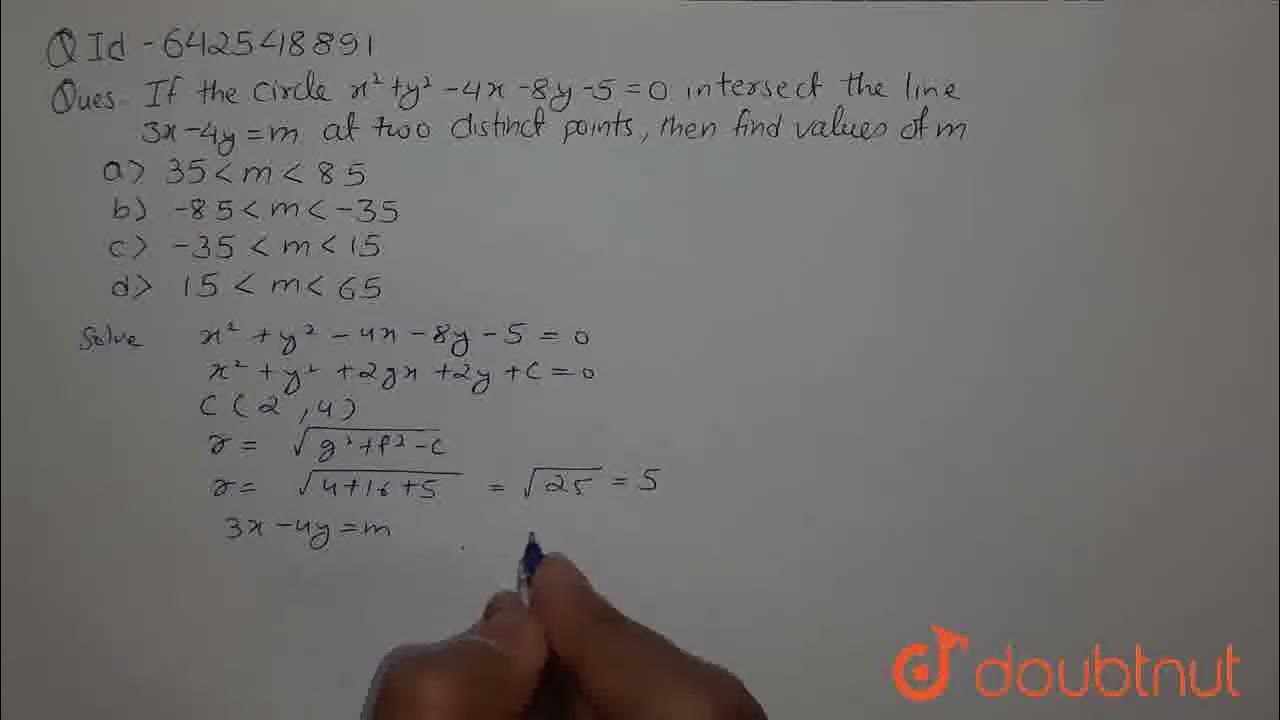 Q Id - 642548891
Ques. If the circle x² + y² - 4x - 8y - 5 = 0 intersect the line
3x - 4y = m at two distinct points, then find values of m
a) 35 < m < 85
b) -85 < m < -35
c) -35 < m < 15
d) 15 < m < 65
Solve x² + y² - 4x - 8y - 5 = 0
x² + y² + 2gx + 2y + c = 0
C (2, 4)
r = √g² + f² - c
r = √4 + 16 + 5 = √25 = 5
3x - 4y = m
doubtnut